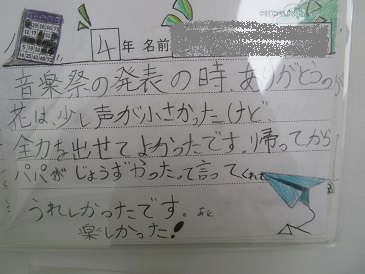 4年 名前
音楽祭の発表の時、ありがとうの
花は、少し声が小さかったけど、
全力を出せてよかったです。帰ってから
パパがじょうずだったって言ってくれて
うれしかったです。あと
楽しかった!